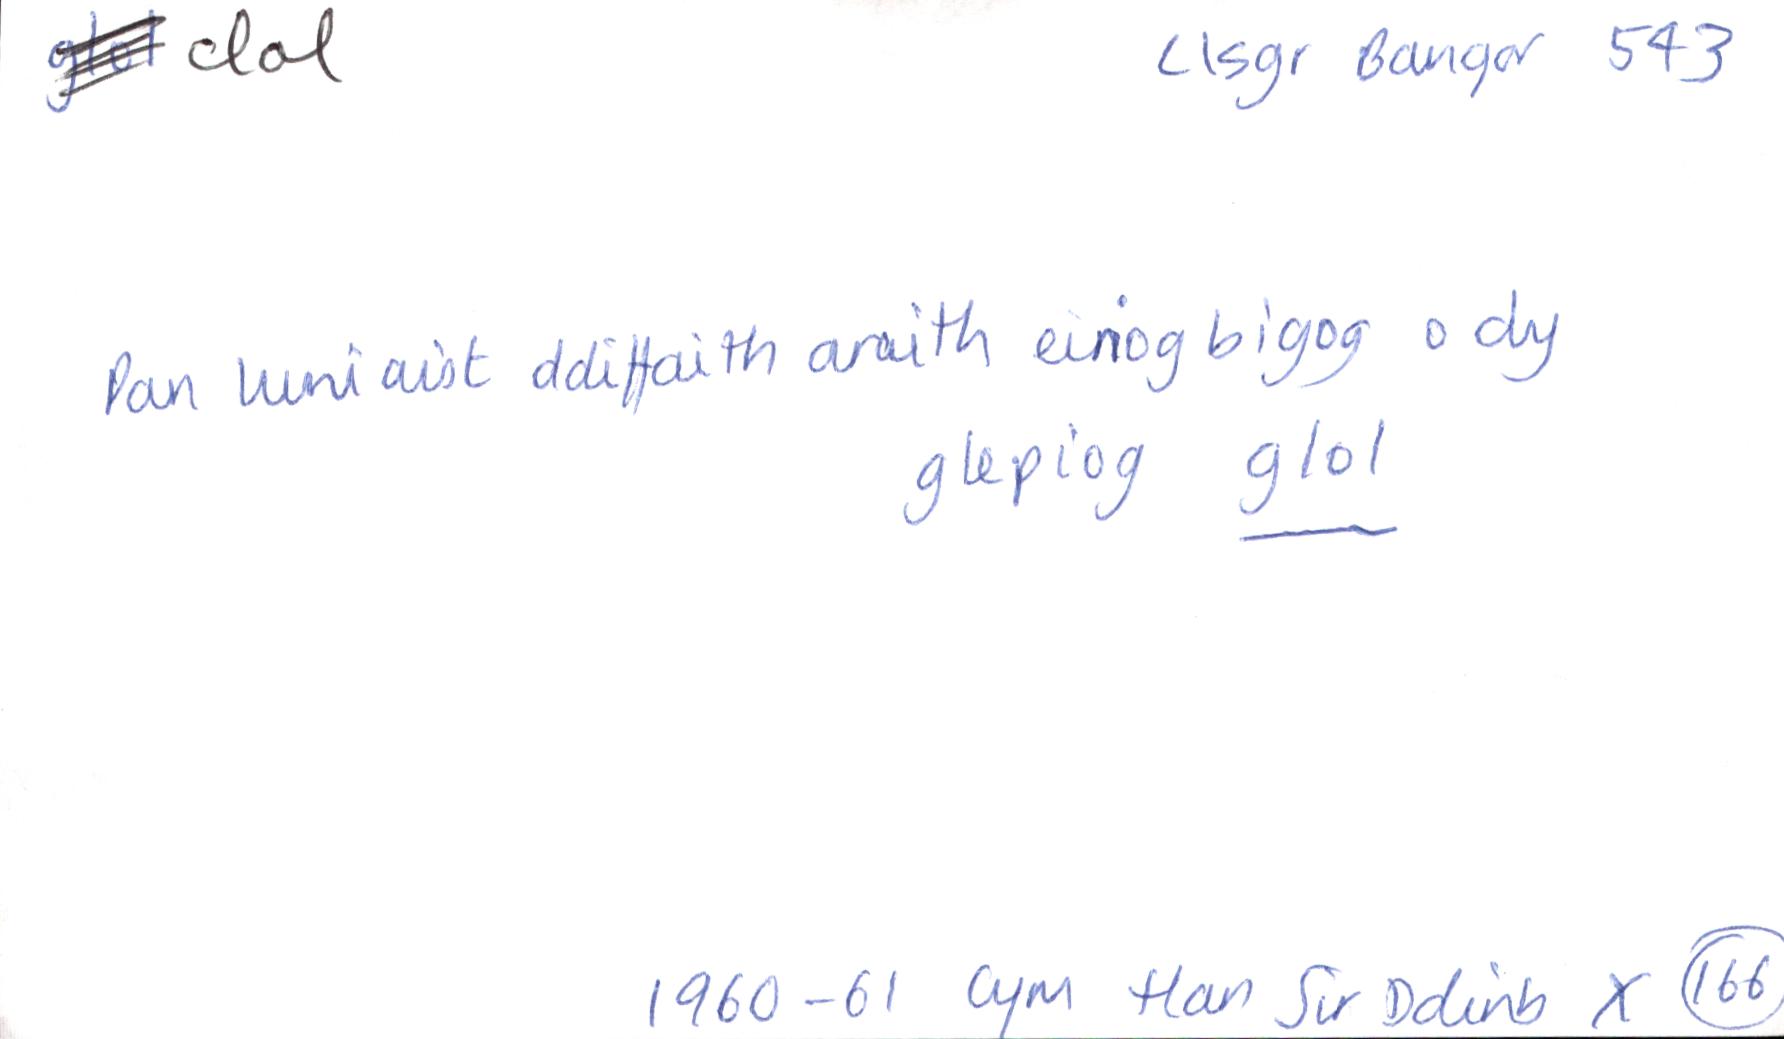 clol Llsgr Bangor 543
Pan luniaist ddiffaith araith einiog bigog o dy
glepiog glol
1960-61 Cym Han Sir Ddinb X 166